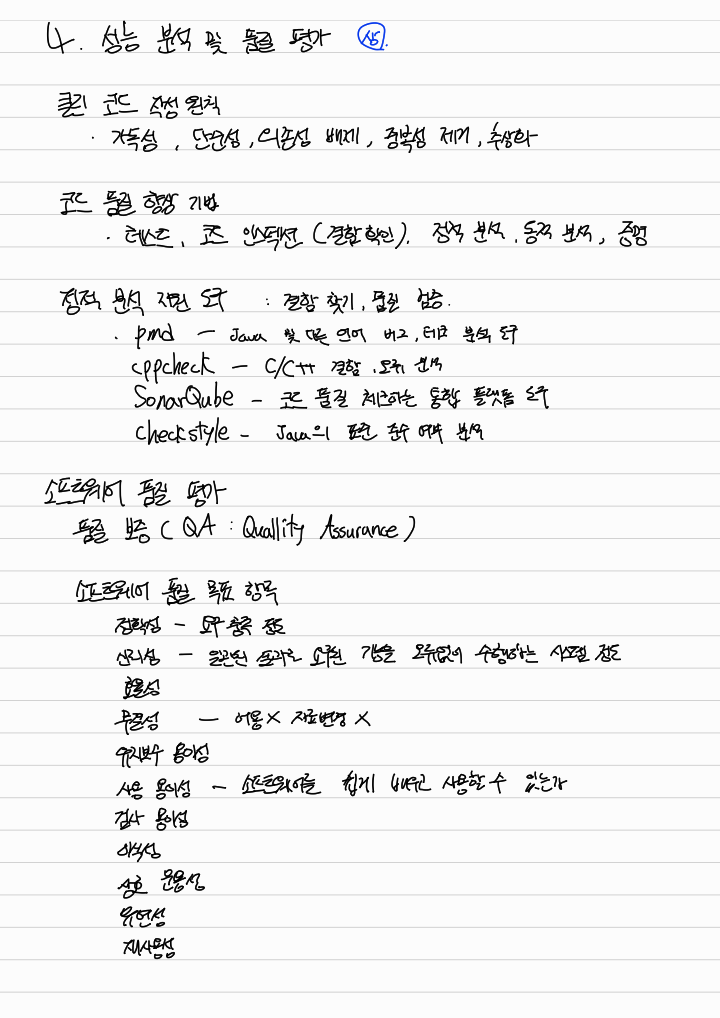 4. 성능 분석 및 품질 평가 상.
클린 코드 작성 원칙
· 가독성, 단순성, 의존성 배제, 중복성 제거, 추상화
코드 품질 향상 기법
· 테스트, 코드 인스펙션 (결함 확인), 정적 분석, 동적 분석, 증명
정적 분석 지원 도구 : 결함 찾기, 품질 검증.
· pmd — Java 및 다른 언어 버그, 데드 분석 도구
cppcheck — C/C++ 결함, 오류 분석
SonarQube — 코드 품질 체크하는 통합 플랫폼 도구
checkstyle — Java의 표준 준수 여부 분석
소프트웨어 품질 평가
품질 보증 (QA : Quallity Assurance)
소프트웨어 품질 목표 항목
정확성 — 요구 충족 정도
신뢰성 — 일관된 결과로 요구된 기능을 오류없이 수행하는 시스템 정도
효율성
무결성 — 허용X 자료변경 X
유지보수 용이성
사용 용이성 — 소프트웨어를 쉽게 배우고 사용할 수 있는가
검사 용이성
이식성
상호 운용성
유연성
재사용성